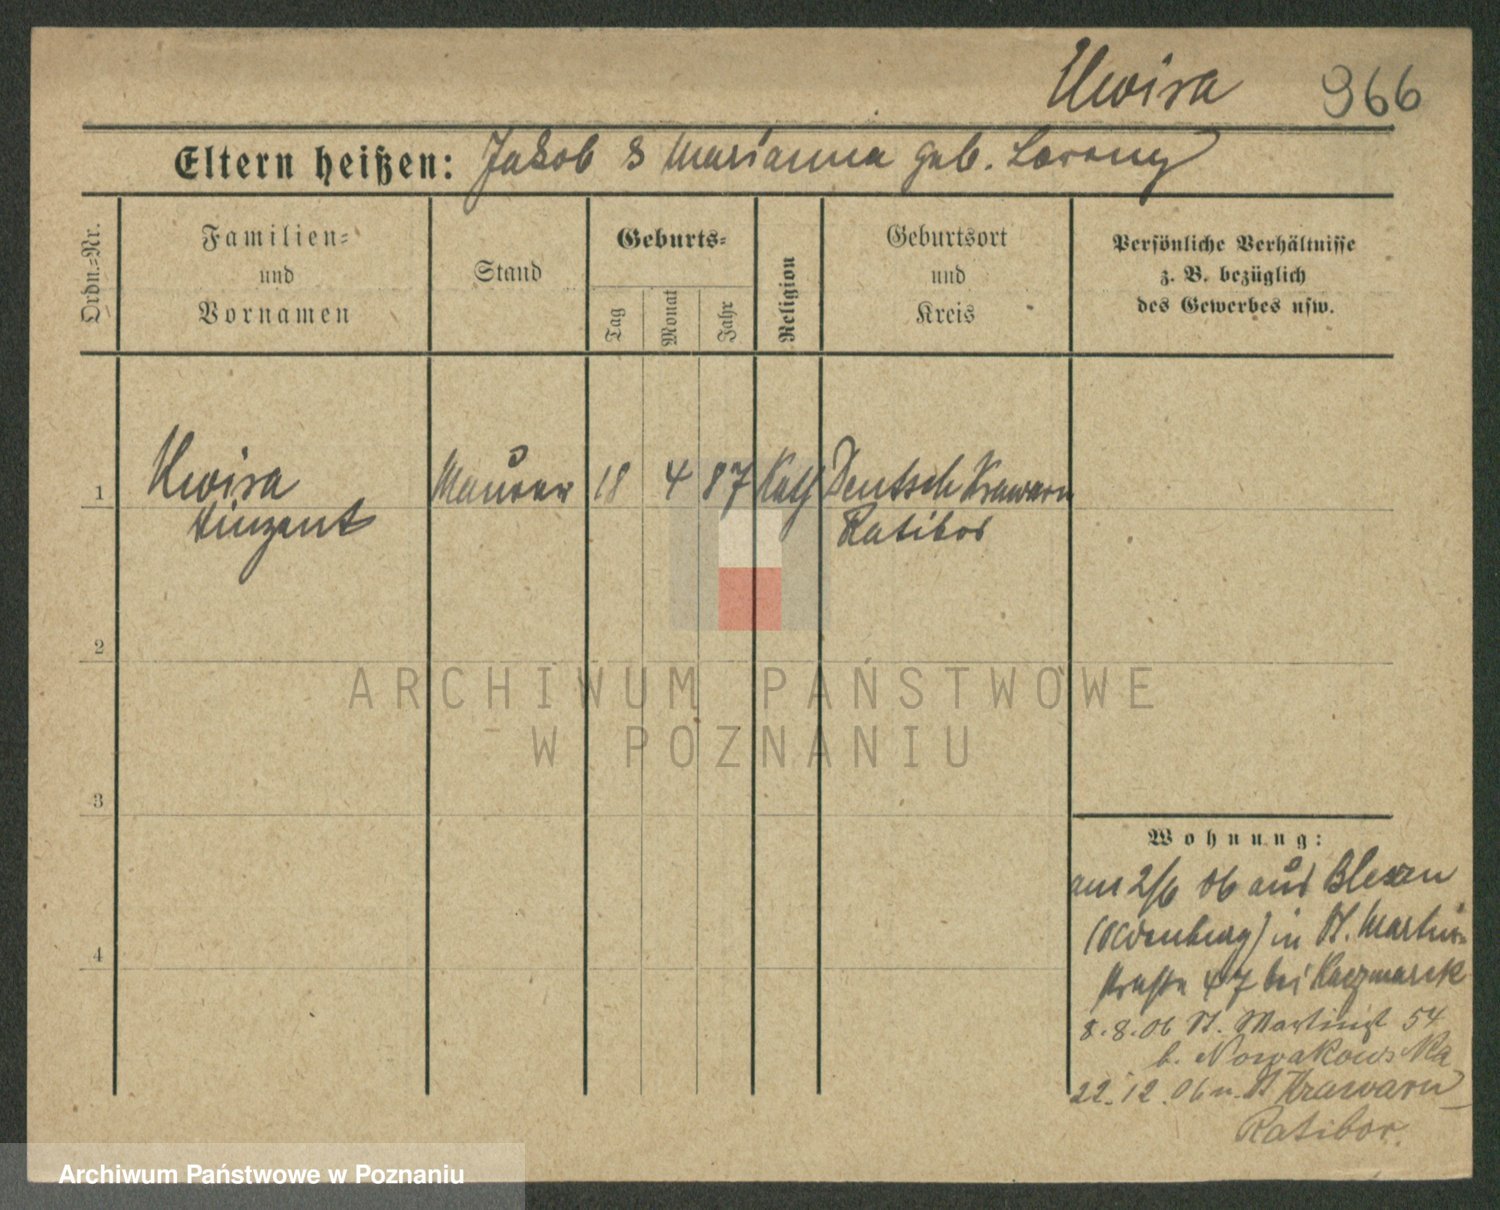 Kwisa 966
Eltern heißen: Jakob & Marianna geb.
Ordn.-Nr.
Familien-
und
Vornamen
Stand
Geburts-
Tag
Monat
Jahr
Religion
Geburtsort
und
Kreis
Persönliche Verhältnisse
z. B. bezüglich
des Gewerbes usw.
1 Kwisa Maurer 18 4 87 Kath Deutsch Krawarn
Vinzent Ratibor
2
3
4
ARCHIWUM PAŃSTWOWE
W POZNANIU
Wohnung:
am 2/6 06 aus Blexen
(Oldenburg) in St. Martin-
straße 47 bei Kaczmarek
8.8.06 St. Martinst 54
b. Nowakowska
22.12.06 n. D Krawarn
Ratibor.
Archiwum Państwowe w Poznaniu